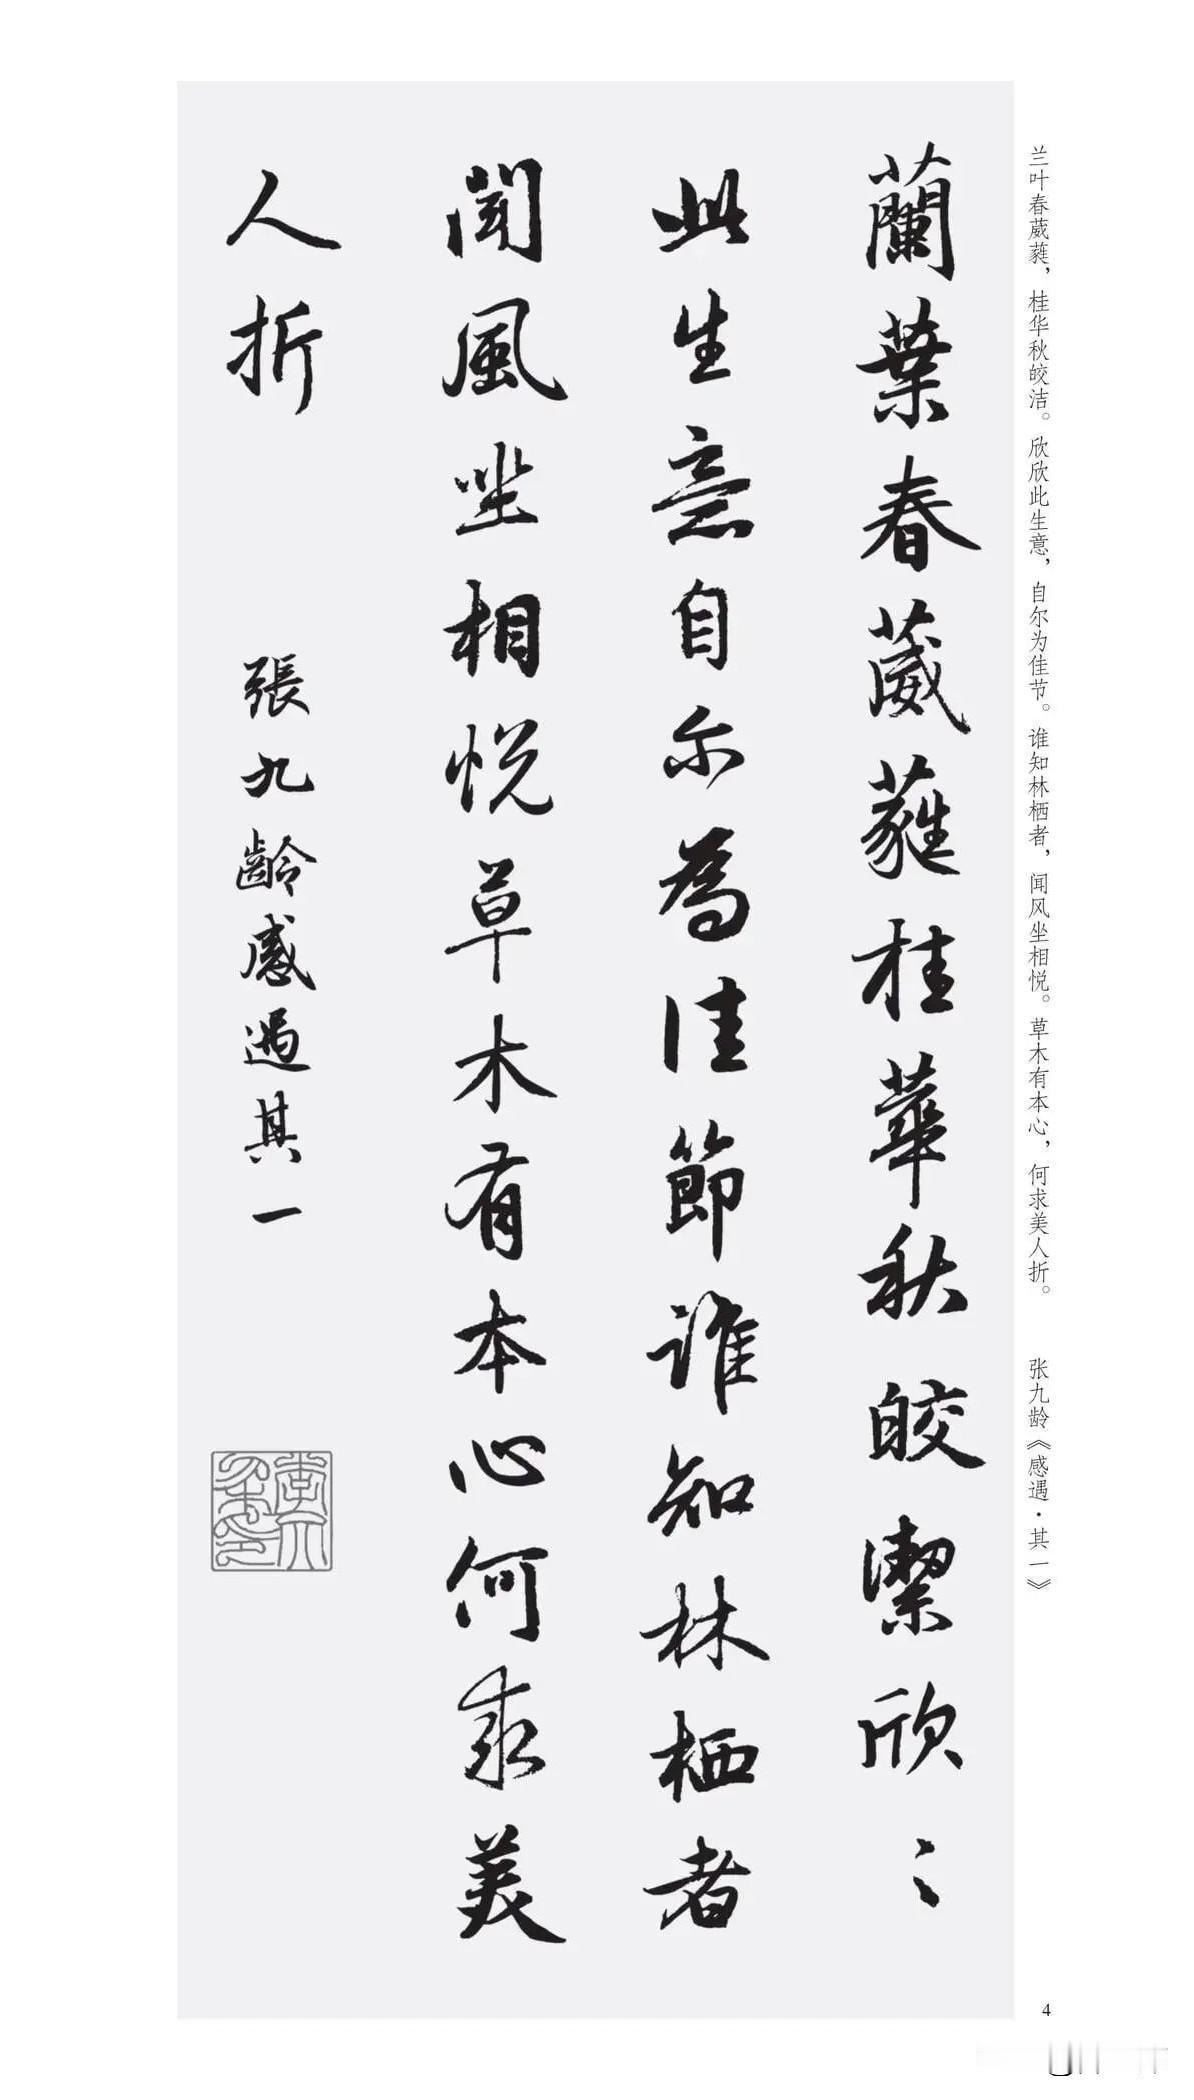 兰叶春葳蕤，桂华秋皎洁。欣欣此生意，自尔为佳节。谁知林栖者，闻风坐相悦。草木有本心，何求美人折。　张九龄《感遇·其一》
蘭葉春葳蕤桂華秋皎潔欣〻
此生意自尔為佳節誰知林栖者
聞風坐相悦草木有本心何求美
人折
張九齡感遇其一
4